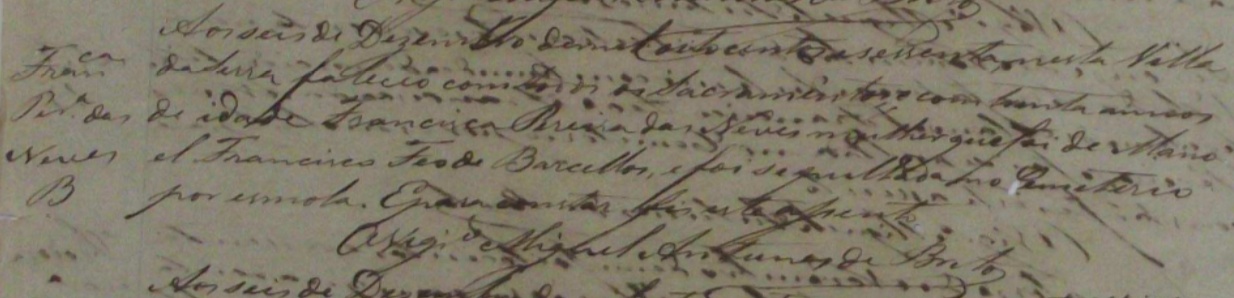 Aos seis de Dezembro de mil oito centos e sessenta, nesta Villa
Fran.ca da Serra faleceo com todos os Sacramentos com trinta annos
Per.a das de idade Francisca Pereira das Neves mulher que foi de Mano
Neves el Francisco Feo de Barcellos, e foi sepultada no Cemeterio
B por esmola. E para constar fiz este assento
O Vig.o Miguel Antunes de Brito
Aos seis de Dezembro de